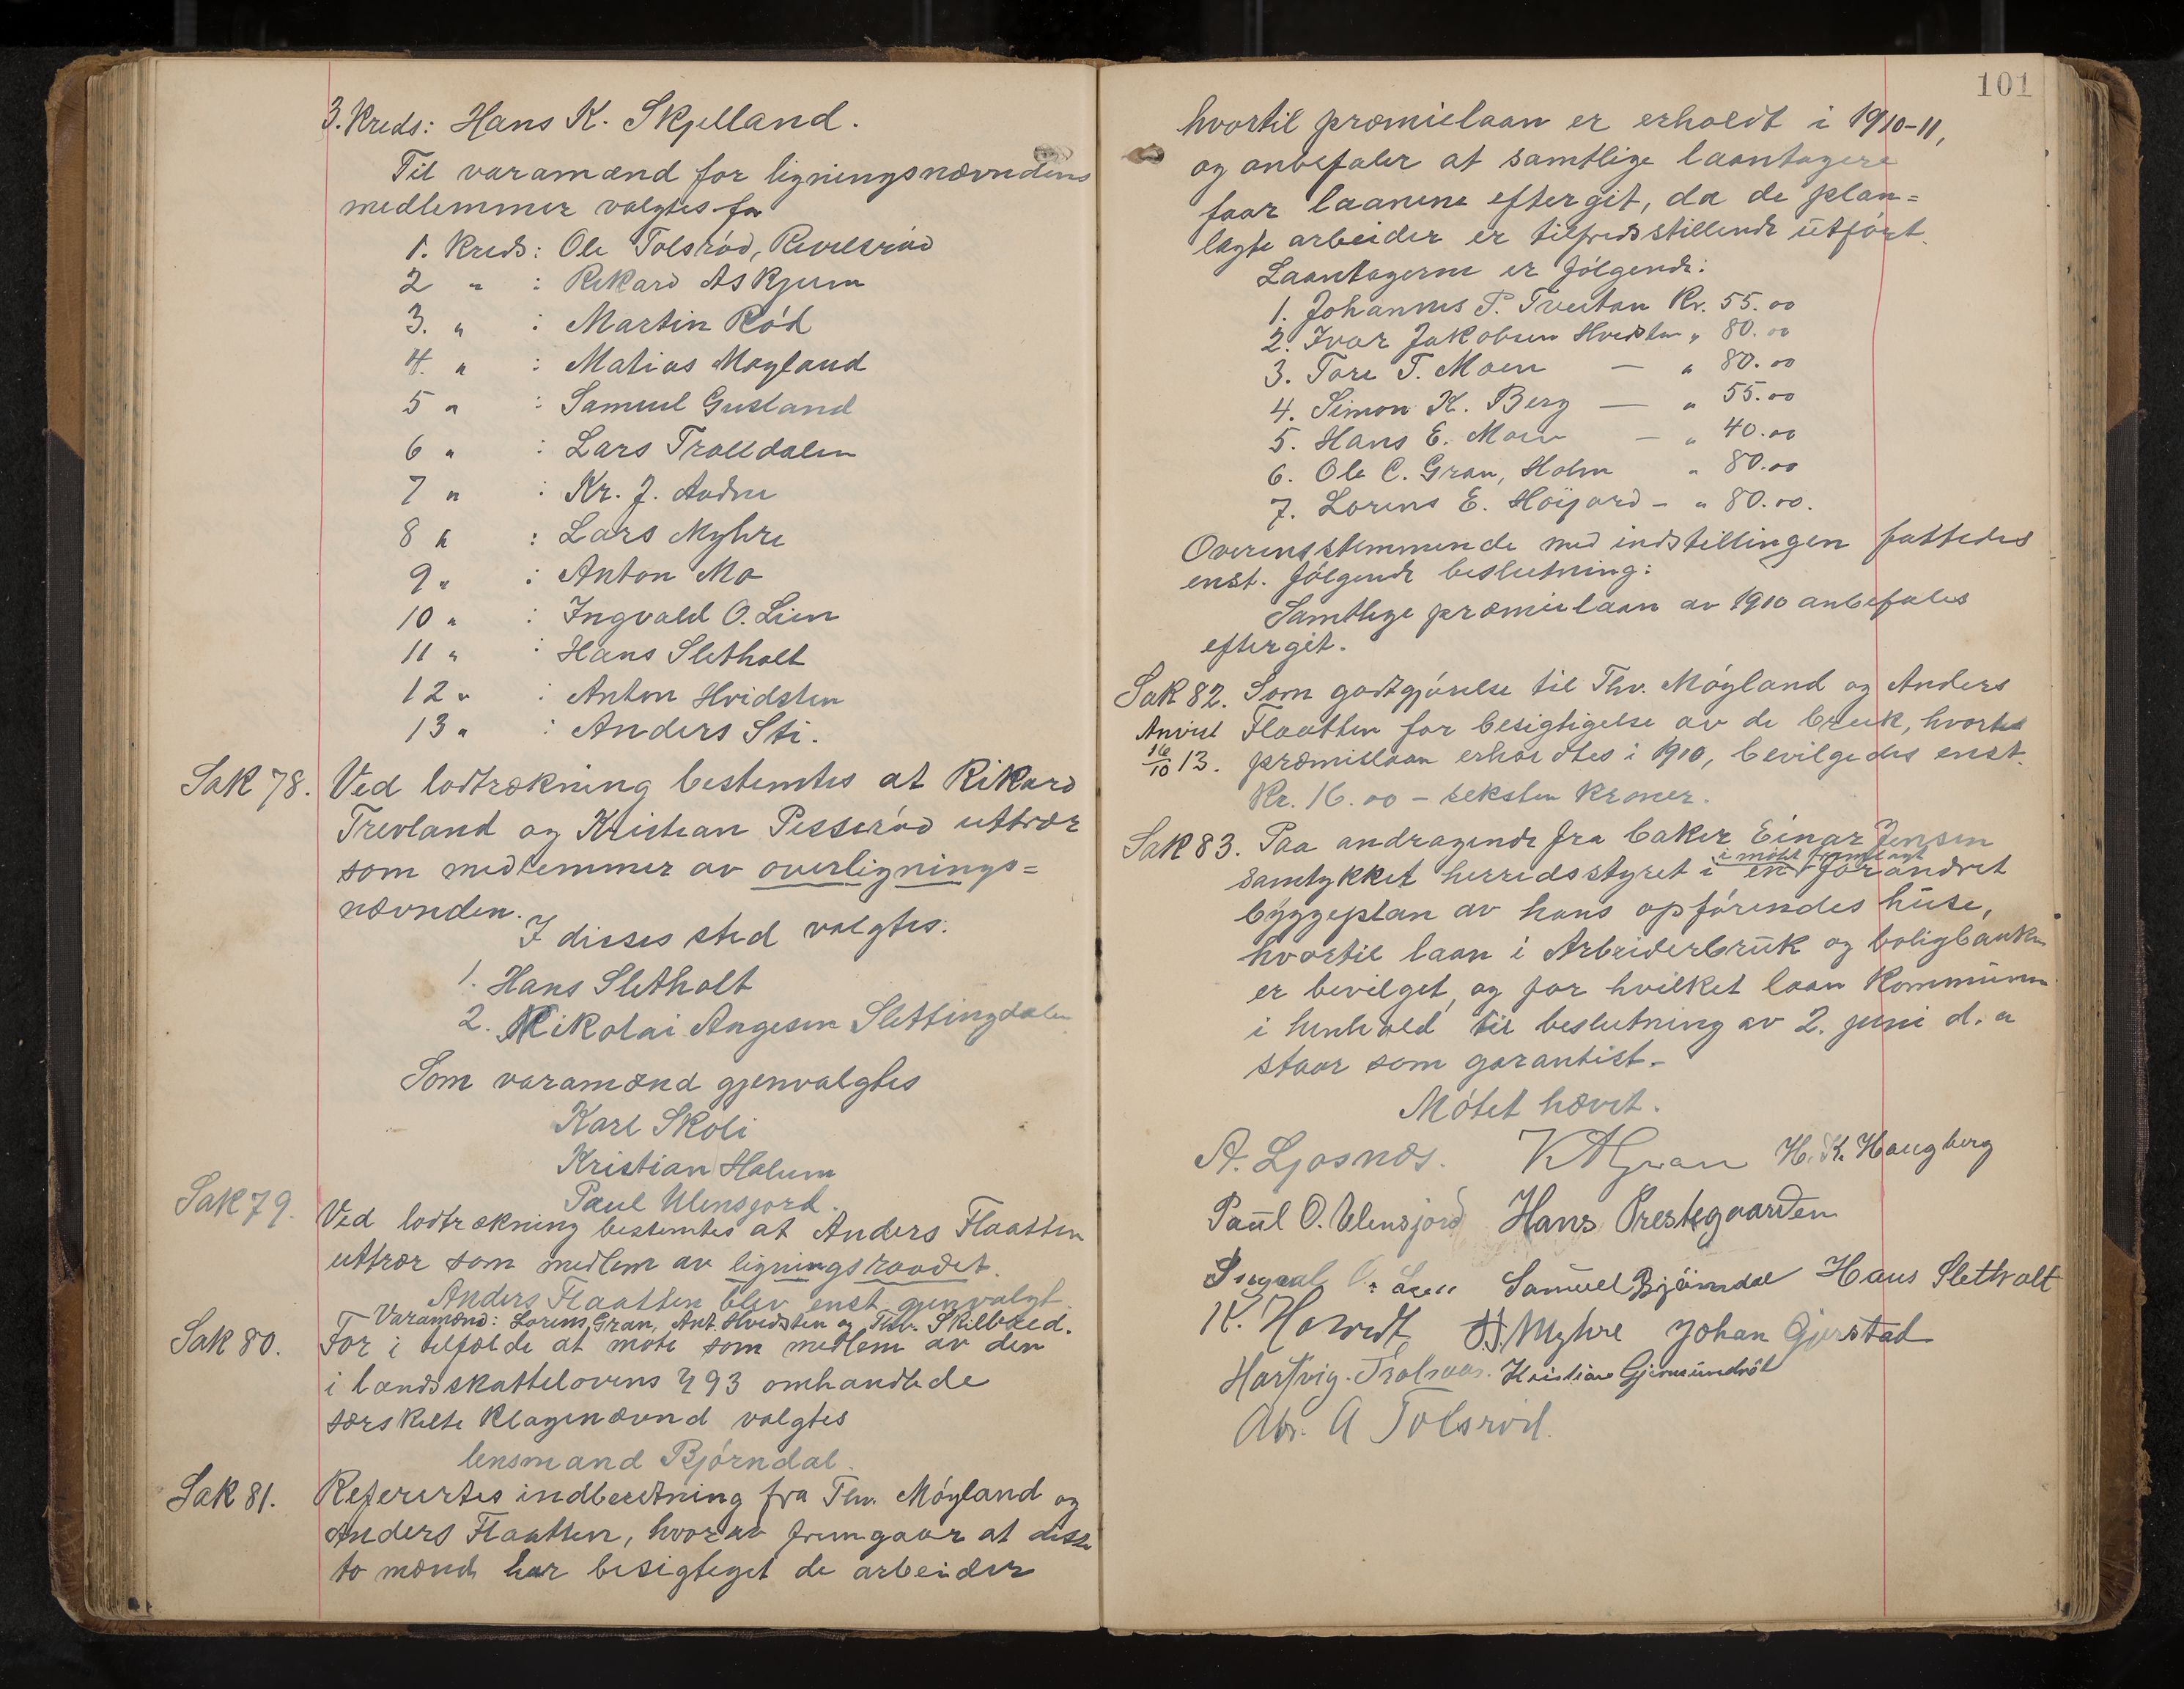 3. Kreds: Hans K. Skjelland.
Til varamænd for ligningsnævndens
medlemmer valgtes for
1. Kreds: Ole Tolsröd, Revelsröd
2 " : Rikard Askjum
3. " : Martin Röd
4. " : Matias Møyland
5 " : Samuel Gusland
6 " : Lars Trolldalen
7 " : Kr. J. Andne
8 " : Lars Myhre
9 " : Anton Mo
10 " : Ingvald O. Lien
11 " : Hans Sletholt
12 " : Anton Hvidsten
13 " : Anders Sti.
Sak 78. Ved lodtrækning bestemtes at Rikard
Trevland og Kristian Pisseröd uttrær
som medlemmer av overlignings=
nævnden.
I disses sted valgtes:
1. Hans Sletholt
2. Nikolai Angesen Slettingdalen
Som varamænd gjenvalgtes
Karl Skoli
Kristian Holum
Paul Ulensjord.
Sak 79. Ved lodtrækning bestemtes at Anders Flaatten
uttrær som medlem av ligningsraadet.
Anders Flaatten blev enst. gjenvalgt.
Varamænd: Lorens Gran, Ant. Hvidsten og Thv. Skilbred.
Sak 80. For i tilfælde at møte som medlem av den
i landsskattelovens § 93 omhandlede
særskilte klagenævnd valgtes
lensmand Björndal.
Sak 81. Referertes indberetning fra Thv. Möyland og
Anders Flaatten, hvorav fremgaar at disse
to mænd har besigtiget de arbeider
101
hvortil præmielaan er erholdt i 1910-11,
og anbefaler at samtlige laantagere
faar laanene eftergit, da de plan=
lagte arbeider er tilfredsstillende utfört.
Laantagerne er fölgende:
1. Johannes P. Tveitan Kr. 55.00
2. Ivar Jakobsen Hvidsten " 80.00
3. Tore T. Moen — " 80.00
4. Simon K. Berg — " 55.00
5. Hans E. Moen — " 40.00
6. Ole C. Gran, Holm " 80.00
7. Lorens E. Höijord - " 80.00.
Overensstemmende med indstillingen fattedes
enst. fölgende beslutning:
Samtlige præmielaan av 1910 anbefales
eftergit.
Sak 82. Som godtgjörelse til Thv. Möyland og Anders
Anvist Flaatten for besigtigelse av de bruk, hvortil
16/10 13. præmielaan erholdtes i 1910, bevilgedes enst.
Kr. 16.00 - seksten kroner.
Sak 83. Paa andragende fra baker Einar Jensen
i mötet fremlagt
samtykket herredsstyret i en forandret
byggeplan av hans opförendes huse,
hvortil laan i Arbeiderbruk og boligbanken
er bevilget, og for hvilket laan kommunen
i henhold til beslutning av 2. juni d. a
staar som garantist.
Mötet hævet.
A. Ljosnæs. K A Gran H. K. Haugberg
Paul O. Ulensjord Hans Prestegaarden
Ingvald O. Lien Samuel Björndal Hans Sletholt
K. Horndt H. Myhre Johan Gjerstad
Hartvig Trolsaas. Kristian Gjermundröd
Abr. A Tolsröd.